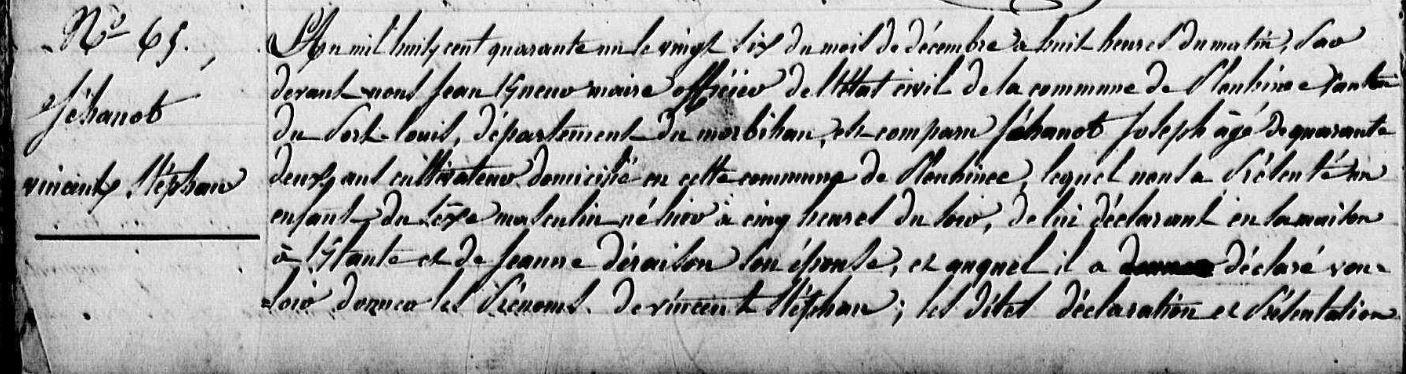 N° 65.
Jéhanot
vincent, Stéphan
L'An mil huit cent quarante un le vingt six du mois de décembre à huit heures du matin, par
devant nous Jean maire officier de l'Etat civil de la commune de Plouhinec Canton
du Port-Louis, département du morbihan, est comparu Jéhanot Joseph âgé de quarante
deux ans cultivateur domicilié en cette commune de Plouhinec, lequel nous a présenté un
enfant du sexe masculin né hier à cinq heures du soir, de lui déclarant en sa maison
à et de Jeanne déraison son épouse, et auquel il a déclaré vou-
loir donner les Prénoms de vincent Stéphan; les dites déclaration et présentation